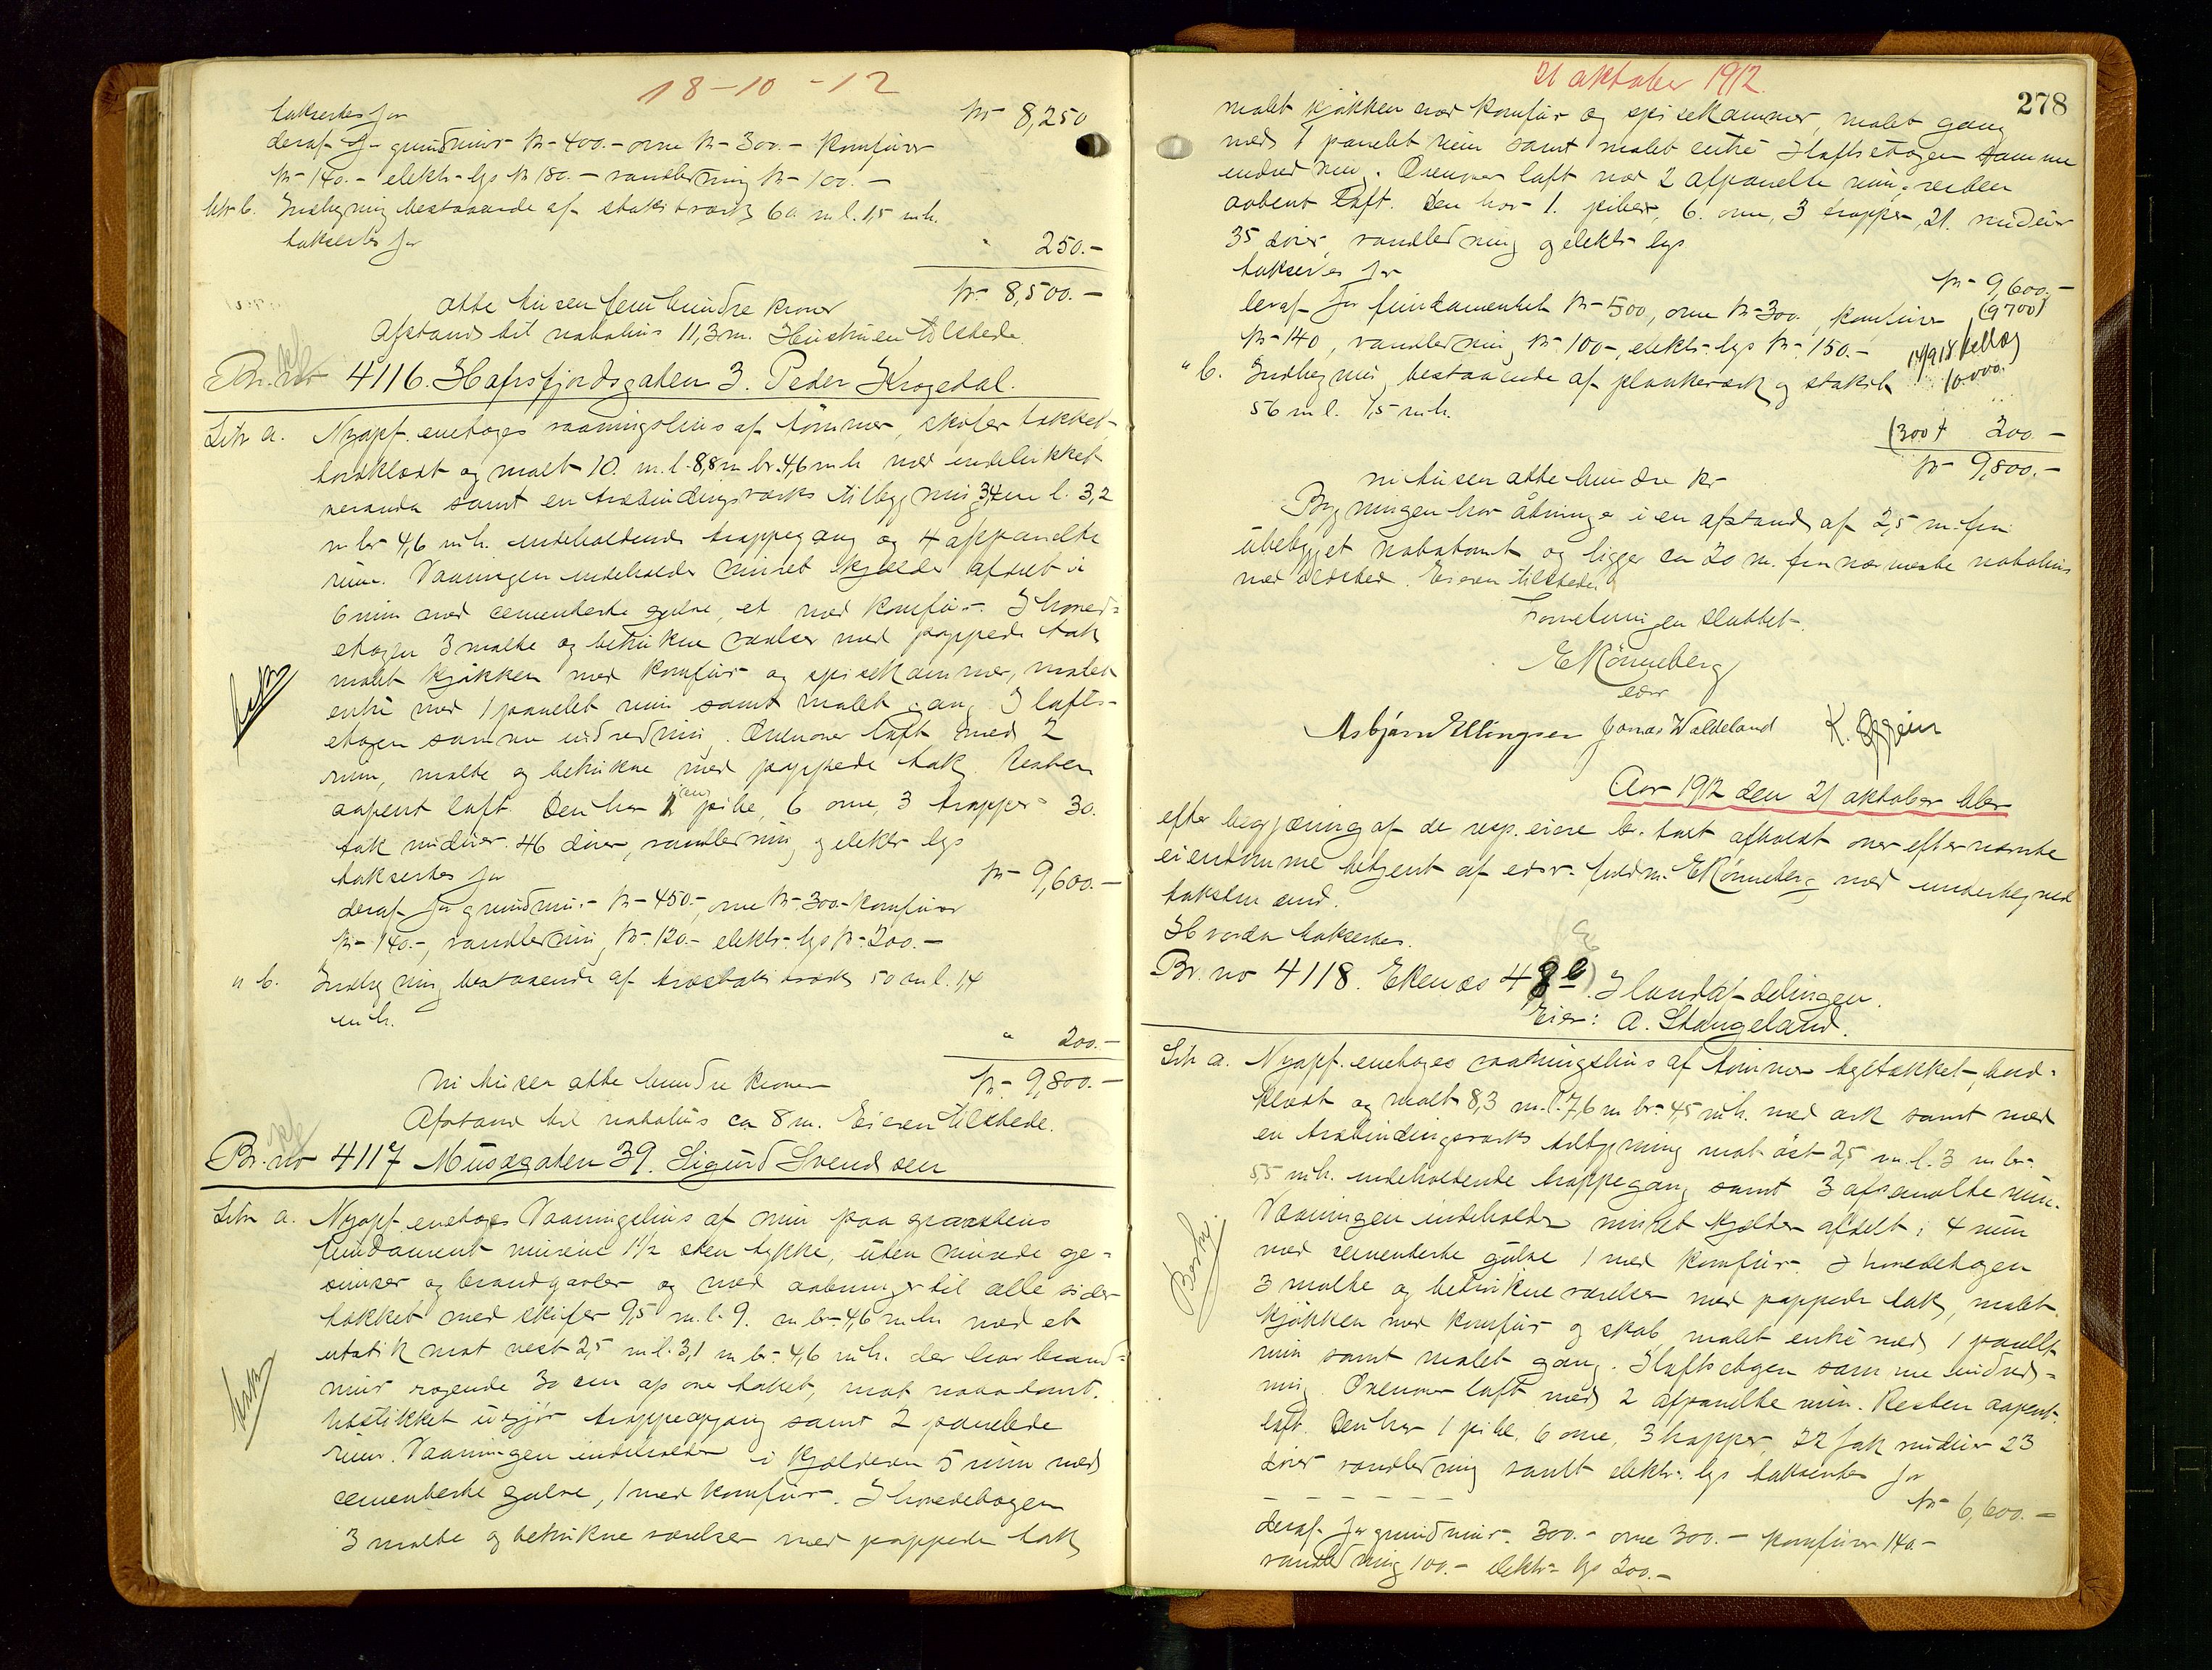 18-10-12
takseres for kr 8,250
deraf for grundmur kr 400.- ovne kr 300.- komfurer
kr 140.- elektr. lys kr 180.- vandledning kr 100.-
Litr b. Indhegning bestaaende af stakitværk 60 m l. 1,5 m h.
takseres for " 250.-
kr 8,500.-
otte tusen fem hundre kroner
Afstand til nabohus 11,3 m. Hustruen tilstede.
Br. no 4116. Hafrsfjordsgaten 3. Peder Krogedal.
Litr a. Nyopf. enetages vaaningshus af tømmer, skifer takket,
bordklædt og malt 10. m. l. 8,8 m br. 4,6 m h med indelukket
veranda samt en træbindingsværks tilbygning 3,4 m l. 3,2
m br 4,6 m h. indeholdende trappegang og 4 afpanelte
rum. Vaaningen indeholder muret kjælder afdelt i
6 rum med cementerte gulve, et med komfur. I hoved-
etagen 3 malte og betrukne værelser med pappede tak
malt kjøkken med komfur og spisekammer, malet
entre med 1 panelet rum samt malet gang. I lofts-
etagen samme indredning. Ovenover loft med 2
rum, malte og betrukne med pappede tak. Resten
aapent loft. Den har 1 (en) pibe, 6 ovne, 3 trapper 30.
fak vinduer. 46 døre, vandledning og elektr. lys
takseres for kr 9,600.-
deraf for grundmur kr 450.-, ovne kr 300.- komfurer
kr 140.-, vandledning kr 120.- elektr. lys kr 200.-
" b. Indhegning bestaaende af træstakitværk 50 m l. 1,4
m h.
" 200.-
kr 9,800.-
ni tusen otte hundre kroner
Afstand til nabohus ca 8 m. Eieren tilstede.
Br. no 4117 Musægaten 39. Sigurd Svendsen
Litr a. Nyopf. enetages Vaaningshus af mur paa graastens
fundament murene 1 1/2 sten tykke, uten murede ge-
simser og brandgavler og med aabninger til alle sider
takket med skifer 9,5 m. l. 9. m br. 4,6 m h. med et
utstik mot vest 2,5 m l. 3,1 m br. 4,6 m h. der har brand-
mur ragende 30 cm op over taket, mot nabotomt.
Utstikket utgjør trappeopgang samt 2 panelede
rum. Vaaningen indeholder i kjælderen 5 rum med
cementerte gulve, 1 med komfur. I hovedetagen
3 malte og betrukne værelser med pappede tak
21 oktober 1912
278
malet kjøkken med komfur og spisekammer, malet gang
med 1 panelet rum samt malet entre. I loftsetagen samme
indredning. Ovenover loft med 2 afpanelte rum, resten
aabent loft. Den har 1. piber, 6. ovne, 3 trapper, 21. vinduer
35 døre, vandledning og elektr. lys
takseres for kr 9,600.-
deraf for fundamentet kr 500, ovne kr 300., komfurer (9700)
kr 140, vandledning kr 100-, elektr. lys kr 150.- 14/9 18 tillæg
" b. Indhegning bestaaende af plankeværk og stakit 10.000.
56 m l. 1,5 m h.
(300) " 200.-
kr 9,800.-
ni tusen otte hundre kr
Bygningen har åbninger i en afstand af 2,5 m. fra
ubebygget nabotomt og ligger ca 20 m. fra nærmeste nabohus
med ildsted. Eieren tilstede.
Forretningen sluttet.
E Rönneberg
edsv
Asbjørn Ellingsen Jonas Waldeland
Aar 1912 den 21 oktober blev
efter begjæring af de resp. eiere br. takst afholdt over efternævnte
eiendomme betjent af edsv. fuldm. E Rönneberg med undertegnede
takstmænd.
Hvorda takseres.
Br. no 4118. Ekenæs 48 e) I landafdelingen.
Eier: A. Stangeland.
Litr a. Nyopf. enetages vaaningshus af tømmer tegltakket, bord-
klædt og malt 8,3 m. l. 7,6 m br. 4,5 m h. med ark samt med
en træbindingsværks tilbygning mot øst 2,5 m. l. 3 m br.
5,5 m h. indeholdende trappegang samt 3 afpanelte rum.
Vaaningen indeholder muret kjelder afdelt i 4 rum
med cementerte gulve 1 med komfur. I hovedetagen
3 malte og betrukne værelser med pappede tak, malet
kjøkken med komfur og skab malet entre med 1 panelt
rum samt malet gang. I loftsetagen samme indred-
ning. Ovenover loft med 2 afpanelte rum. Resten aapent
loft. Den har 1 pibe. 6 ovne, 3 trapper, 22 fak vinduer 23
døre vandledning samt elektr. lys takseres for
kr 6,600.-
deraf for grundmur. 300.- ovne 300.- komfurer 140.-
vandledning 100.- elektr. lys 200.-